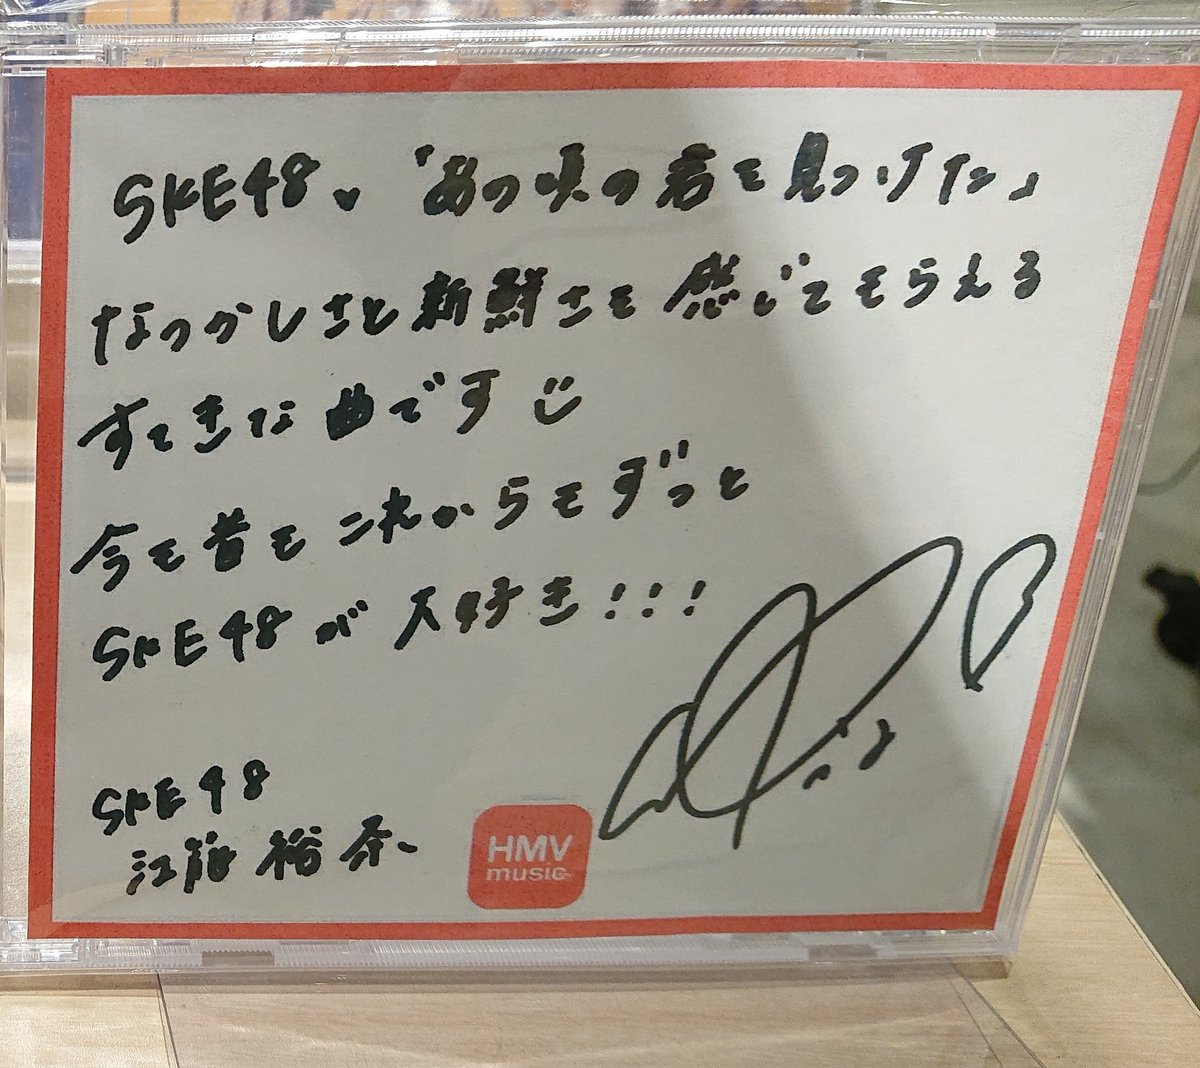 SKE48♥「あの頃の君を見つけた」
なつかしさと新鮮さを感じてもらえる
すてきな曲です
今も昔もこれからもずっと
SKE48が大好き!!!
SKE48
江籠裕奈
HMV
music